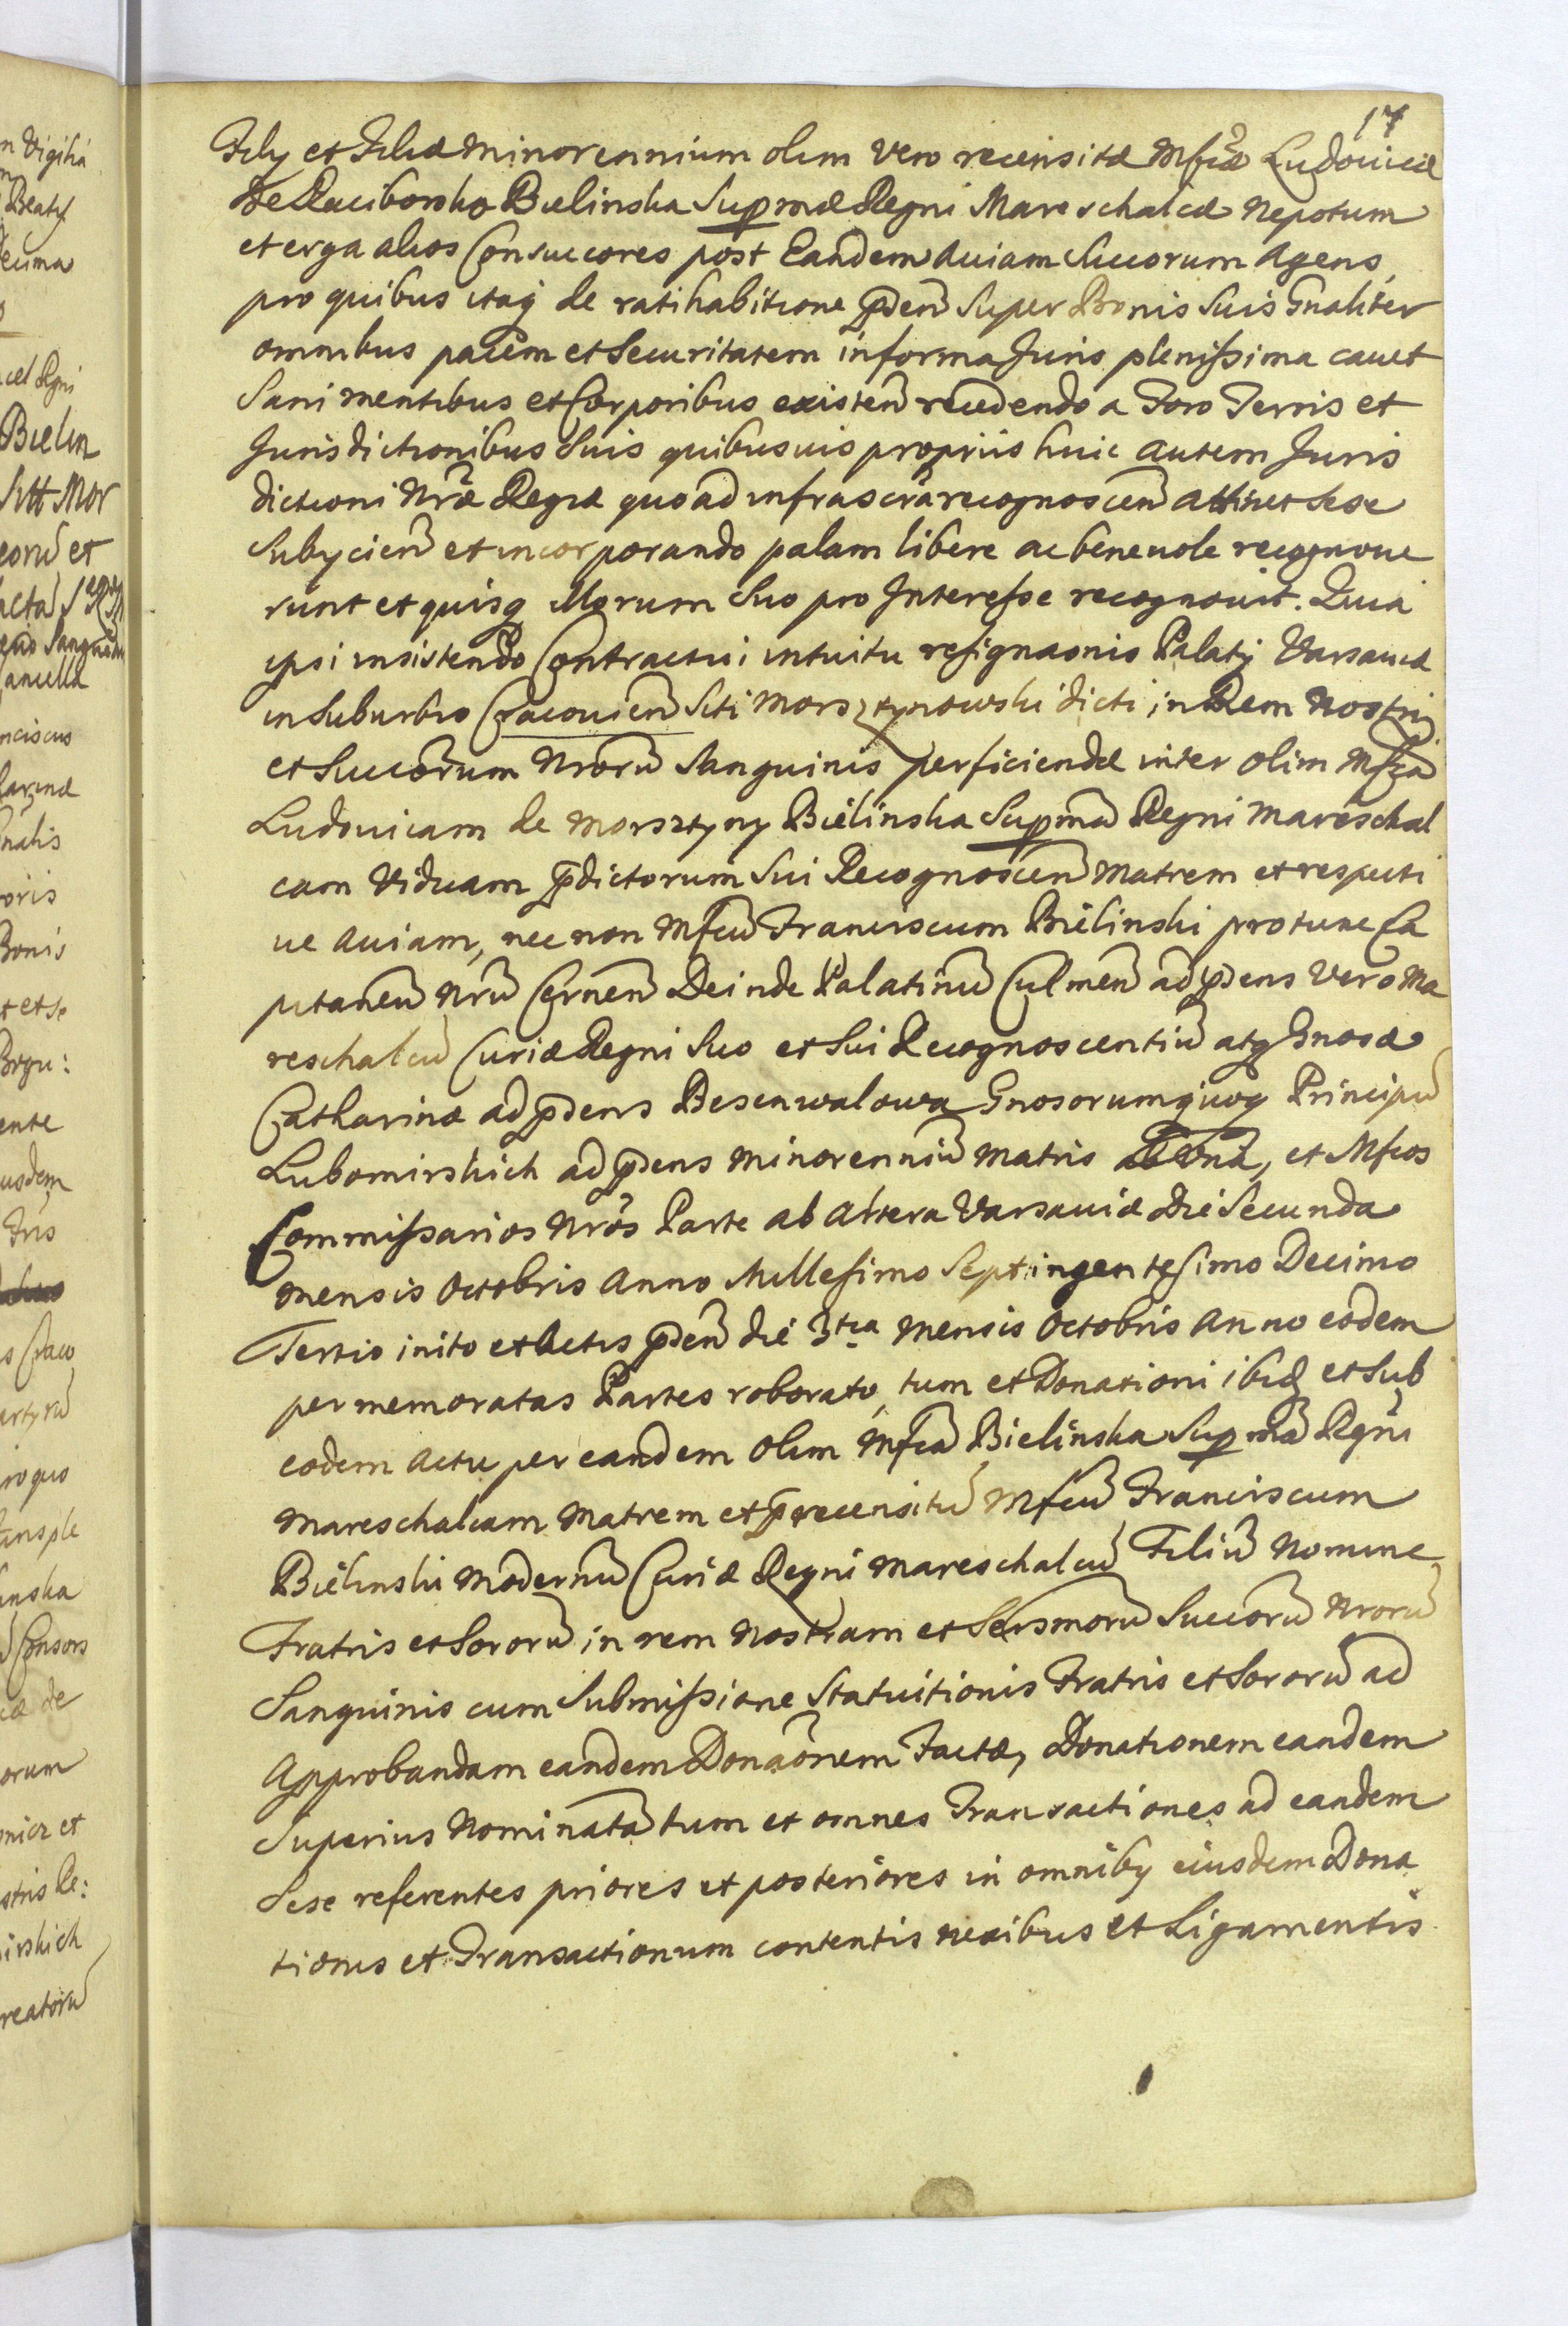 17
Filij et Filiæ Minorennium olim Vero recensitæ Mfcæ Ludovicæ
De Raciborsko Bielinska Supremæ Regni Mareschalcæ Nepotum
et erga alios Consuccores post Eandem Aviam Succorum Agens,
pro quibus itaq de ratihabitione p̄den̄ Super Bonis Suis Gnaliter
omnibus pacem et Securitatem in forma Juris plenissima cavet
Sani mentibus et Corporibus existen̄ recedendo a Foro Terris et
Jurisdictionibus Suis quibusvis propriis huic autem Juris
dictioni Nræ Regiæ quo ad infrascrā recognoscen̄ attinet Sese
Subijcien̄ et incorporando palam libere ac benevole recognove
runt et quisq Illorum Suo pro Interesse recognovit. Quia
ipsi insistendo Contractui intuitu resignaonis Palatij Varsaviæ
in Suburbio Cracovien̄ Siti Morsztynowski dicti in Rem Nostri
et Succorum Nrorū Sanguinis perficiendæ inter olim Mfcā
Ludovicam de Morsztyny Bielinska Supmā Regni Mareschal
cam Viduam p̄dictorum Sui Recognoscen̄ Matrem et respecti
ve Aviam, nec non Mfcū Franciscum Bielinski pro tunc Ca
pitaneū Nrū Cernen̄ Deinde Palatinū Culmen̄ ad p̄dens Vero Ma
reschalcū Curiæ Regni Suo et Sui Recognoscentiū atq Gnosæ
Catharinæ ad p̄dens Besenwalowa Gnosorumq̄uoq Principū
Lubomirskich ad p̄dens Minorenniū Matris Unā, et Mfcos
Commissarios Nros Parte ab altera Varsaviæ Die Secunda
Mensis Octobris Anno Millesimo Septingentesimo Decimo
Tertio inito et Actis p̄den̄ die 3tia Mensis Octobris Anno eodem
per memoratas Partes roborato, tum et Donationi ibid et Sub
eodem Actu per eandem olim Mfcā Bielinska Supmā Regni
Mareschalcam Matrem et p̄recensitū Mfcū Franciscum
Bielinski Modernū Curiæ Regni Mareschalcū Filiū Nomine
Fratris et Sororū in rem Nostram et Sersmorū Succorū Nrorū
Sanguinis cum Submissione Statuitionis Fratris et Sororū ad
Approbandam eandem Donaōnem Factæ, Donationem eandem
Superius Nominatā tum et omnes Transactiones ad eandem
Sese referentes priores et posteriores in omniby eiusdem Dona
tionis et Transactionum contentis nexibus et Ligamentis